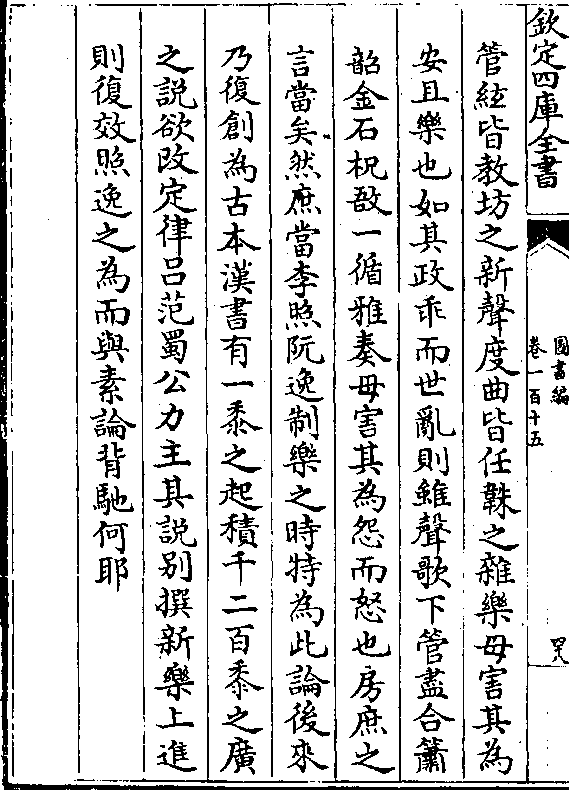 欽定四庫全書
圖書編
卷一百十五
四八
管絃皆教坊之新聲度曲皆任韎之雜樂毋害其為
安且樂也如其政乖而世亂則雖聲歌下管盡合簫
韶金石柷敔一循雅奏毋害其為怨而怒也房庶之
言當矣然庶當李照阮逸制樂之時特為此論後來
乃復創為古本漢書有一黍之起積千二百黍之廣
之說欲改定律呂范蜀公力主其說别撰新樂上進
則復效照逸之為而與素論背馳何耶